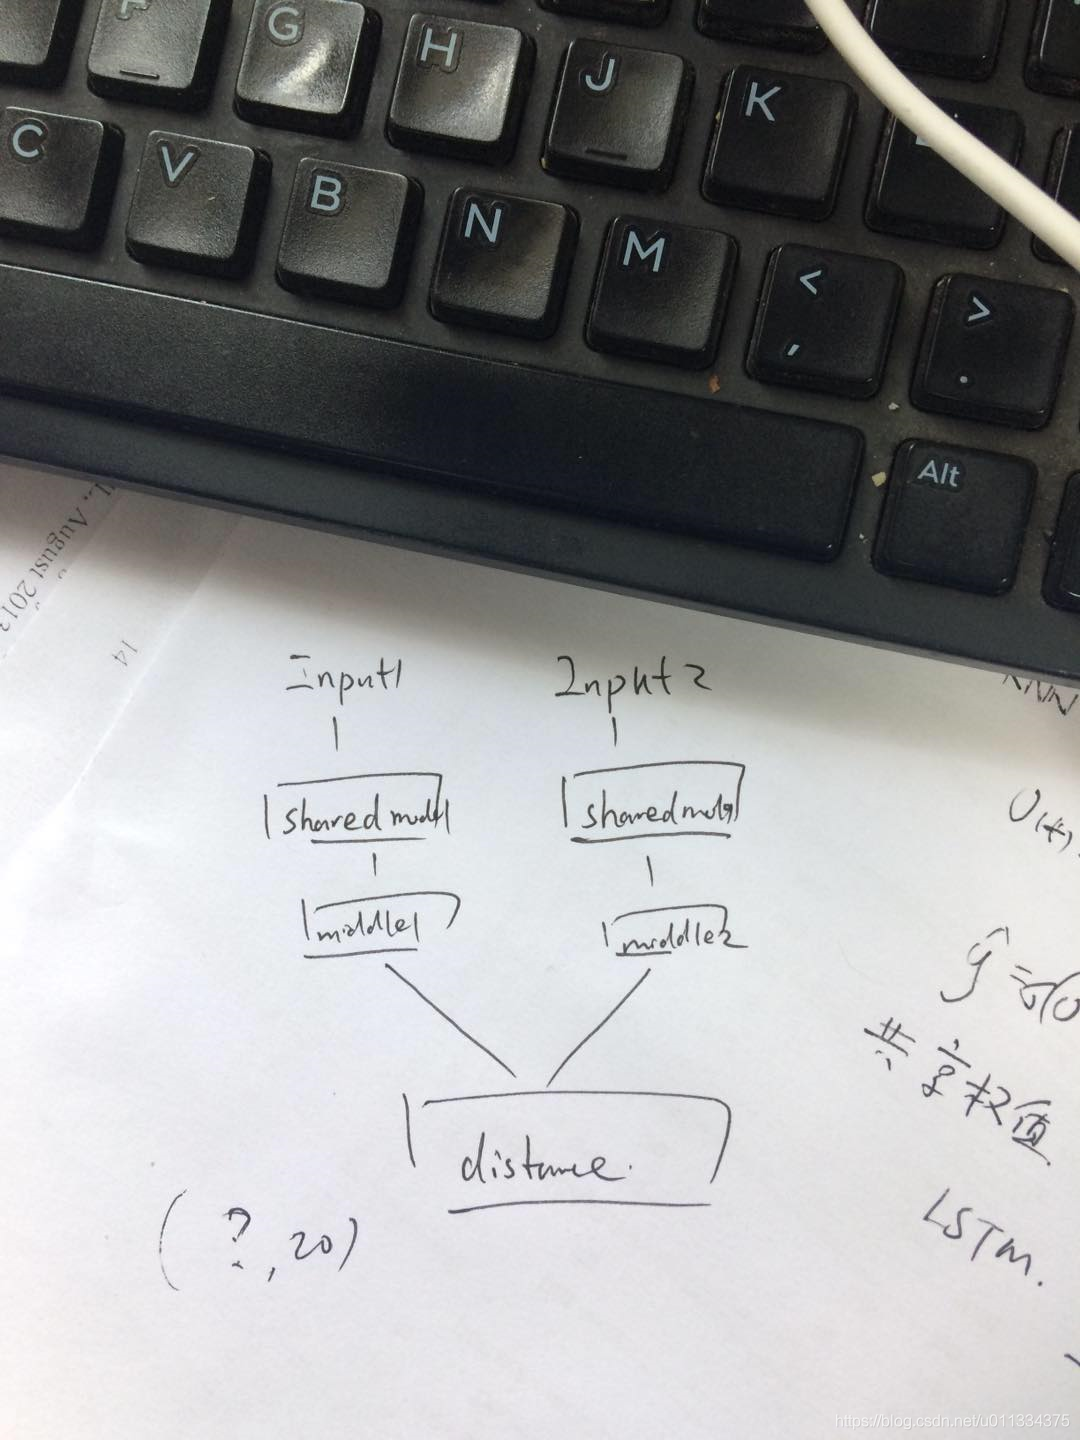 F G H J K
C V B N M < ,
> .
Alt
August 2013
14
Input1 Input2
shared model shared model
middle1 middle2
distance.
(?,20)
RNN
ŷ=σ(o
共享权值
LSTM.
https://blog.csdn.net/u011334375